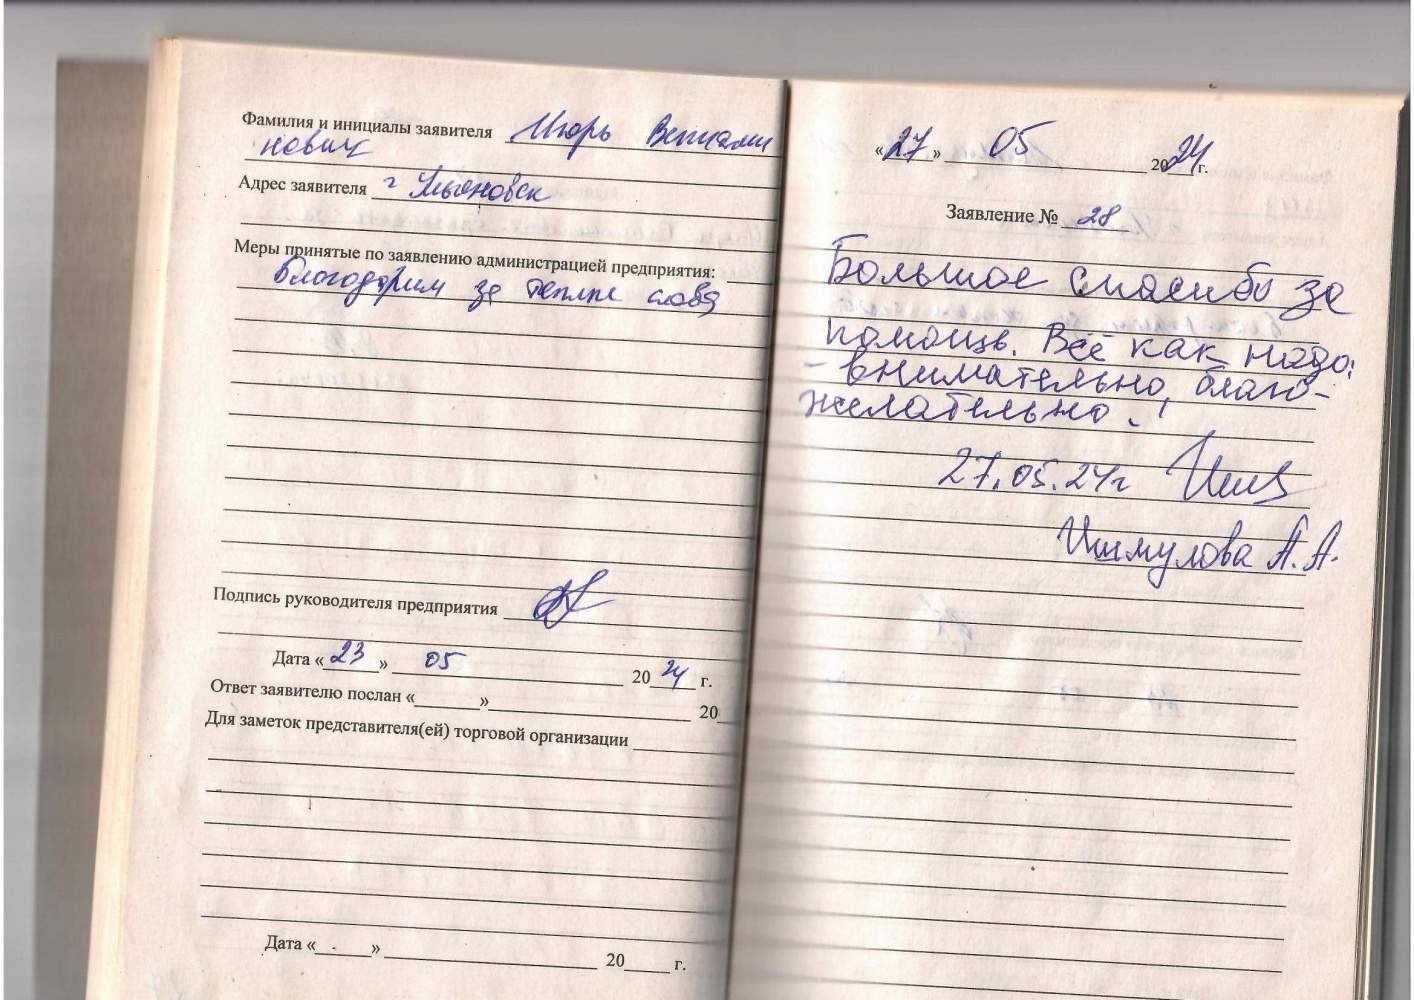 Фамилия и инициалы заявителя Игорь Вениами
нович
Адрес заявителя г Ульяновск
Меры принятые по заявлению администрацией предприятия:
благодарим за теплые слова
Подпись руководителя предприятия
Дата «23» 05 2024 г.
Ответ заявителю послан «        » 20
Для заметок представителя(ей) торговой организации
Дата «        » 20     г.
«27» 05 2024 г.
Заявление № 28
Большое спасибо за
помощь. Всё как надо:
- внимательно, благо-
желательно.!
27.05.24г
Ишмулова А.А.